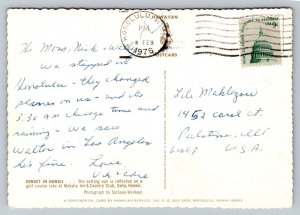 HONOLULU
PM
9 FEB
1976
HAWAIIAN
POSTCARD
9¢
Hi Mom, Nick
We stopped in
Honolulu - they changed
planes on us - and its
5:30 am Chicago time and
raining - We saw
Walter in Los Angeles
he's fine. Love
1452 card ct.
Palatine, Ill
60067 U.S.A.
SUNSET IN HAWAII - The setting sun is reflected on a
golf course lake at Makaha Inn & Country Club, Oahu, Hawaii.
Photograph by
A CONTINENTAL CARD BY HAWAIIAN SERVICE, INC. P.O. BOX HONOLULU, HAWAII